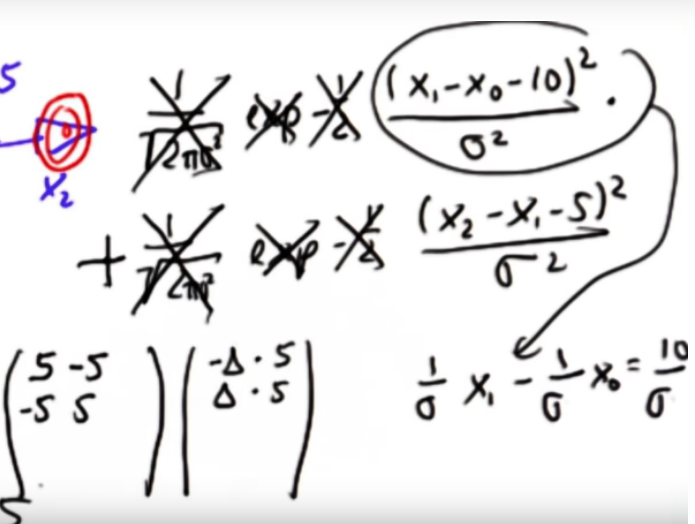 5
x₂
1/√2πσ² exp -1/2 (x₁-x₀-10)²/σ² ·
+ 1/√2πσ² exp -1/2 (x₂-x₁-5)²/σ²
5 -5
-5 5
-Δ · 5
Δ · 5
1/σ x₁ - 1/σ x₀ = 10/σ
5